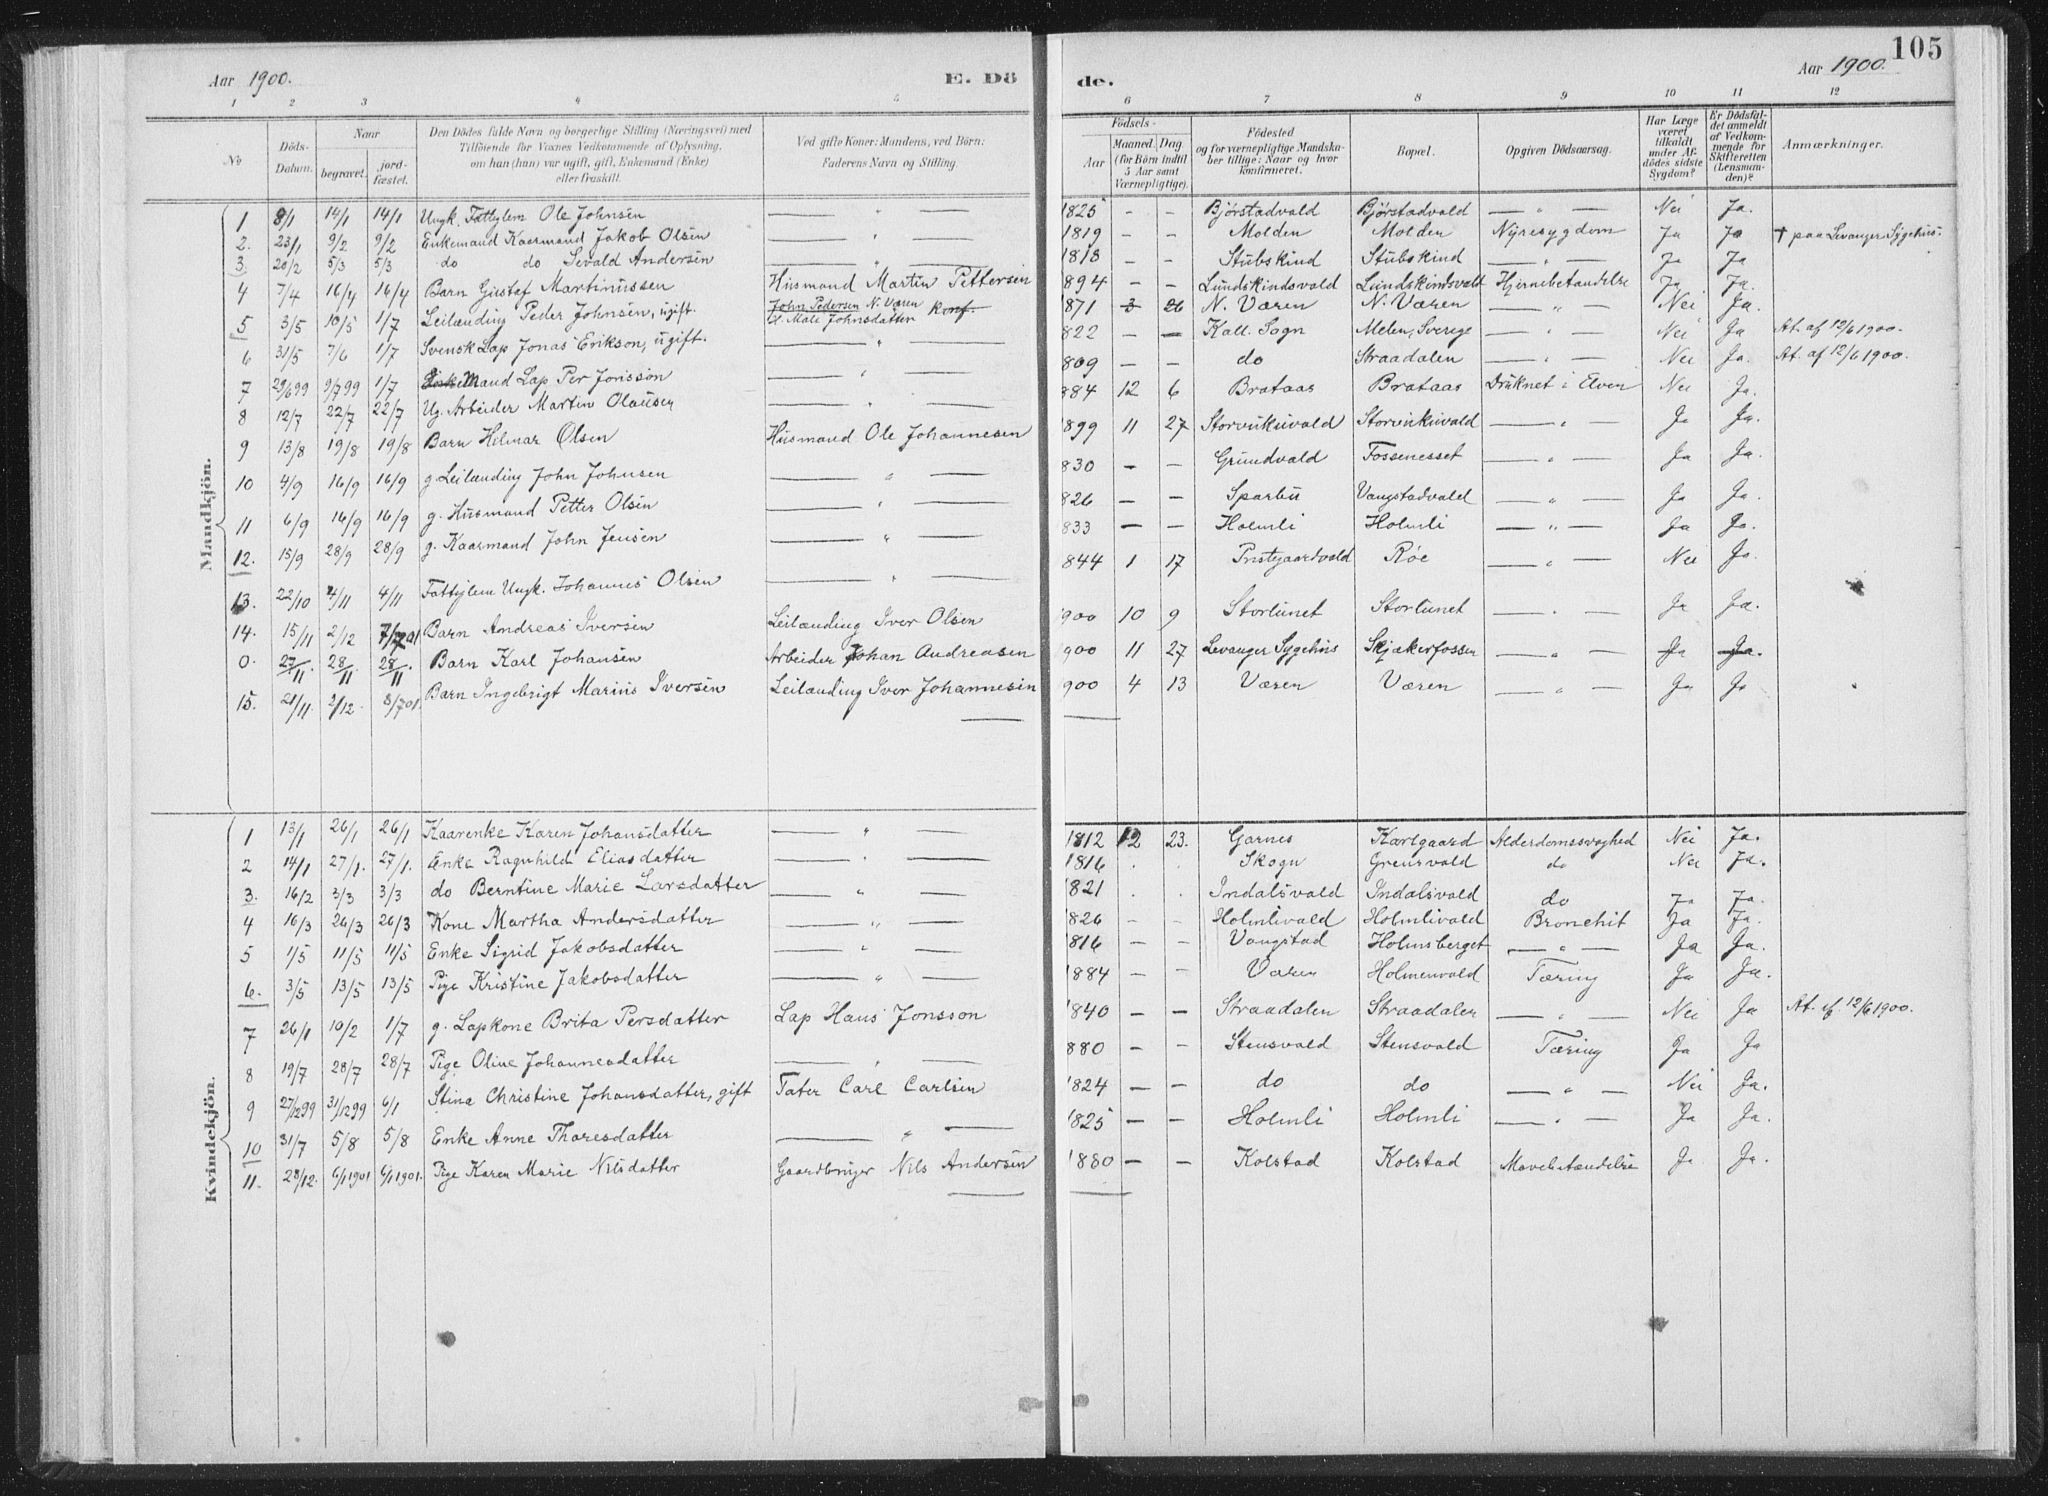 105
Aar 1900. E. Dö de. Aar 1900.
1 2 3 4 5 6 7 8 9 10 11 12
No
Döds-Datum.
Naar begravet. jordfæstet.
Den Dödes fulde Navn og borgerlige Stilling (Næringsvei) med Tilföiende for Voxnes Vedkommende af Oplysning, om han (hun) var ugift, gift, Enkemand (Enke) eller fraskilt.
Ved gifte Koner: Mandens, ved Börn: Faderens Navn og Stilling.
Födsels- Aar Maaned. Dag. (for Börn indtil 5 Aar samt Værnepligtige).
Födested og for værnepligtige Mandskaber tillige: Naar og hvor konfirmeret.
Bopæl.
Opgiven Dödsaarsag.
Har Læge været tilkaldt under Afdödes sidste Sygdom?
Er Dödsfaldet anmeldt af Vedkommende for Skifteretten (Lensmanden)?
Anmærkninger.
Mandkjön.
1 8/1 14/1 14/1 Ungk. Fattiglem Ole Johnsen — " — 1825 — — Bjørstadvald Bjørstadvald — " — Nei Ja.
2. 23/1 9/2 9/2 Enkemand Kaarmand Jakob Olsen — " — 1819 — — Molden Molden Nyresygdom Ja Ja † paa Levanger Sygehus.
3. 20/2 5/3 5/3 do do Sevald Andersen — " — 1818 — — Stubskind Stubskind — " — Ja Ja
4 7/4 16/4 16/4 Barn Gustaf Martinussen Husmand Martin Pettersen 1894 — — Lundskindsvald Lundskindsvald Hjernebetændelse Ja Ja.
5 3/5 10/5 1/7 Leilænding Peder Johnsen, ugift. John Pedersen N. Væren 1871 3 26 N. Væren N. Væren — " — Nei Ja.
Mali Johnsdatter
6 31/5 7/6 1/7 Svensk Lap Jonas Erikson, ugift. — " — 822 — — Kall. Sogn Melen, Sverige — " — Nei Ja At. af 12/6 1900.
7 29/6 99 9/7 99 1/7 Enkemand Lap Per Jonsson — " — 809 — — do Straadalen — " — Nei Ja. At. af 12/6 1900.
8 12/7 22/7 22/7 Ug. Arbeider Martin Olausen — " — 884 12 6 Brataas Brataas Druknet i Elven Nei Ja.
9 13/8 19/8 19/8 Barn Hilmar Olsen Husmand Ole Johannesen 1899 11 27 Storvukuvald Storvukuvald — " — Ja Ja.
10 4/9 16/9 16/9 g. Leilænding John Johnsen — " — 830 — — Grundvald Fossenesset — " — Ja Ja.
11 6/9 16/9 16/9 g. Husmand Petter Olsen — " — 826 — — Sparbu Vangstadvald — " — Ja Ja.
12. 15/9 28/9 28/9 g. Kaarmand John Jensen — " — 833 — — Holmli Holmli — " — Ja Ja.
13. 22/10 4/11 4/11 Fattiglem Ungk. Johannes Olsen — " — 844 1 17 Prestgaardvald Røe — " — Nei Ja.
14. 15/11 2/12 7/7 01 Barn Andreas Iversen Leilænding Iver Olsen 900 10 9 Storlunet Storlunet — " — Ja Ja.
0. 27/11. 28/11 28/11. Barn Karl Johansen Arbeider Johan Andreasen 900 11 27 Levanger Sygehus Skjækerfossen — " — Ja Ja.
15. 21/11. 2/12. 8/7 01 Barn Ingebrigt Marius Iversen Leilænding Iver Johannesen 900 4 13 Væren Væren — " — Ja Ja
Kvindekjön.
1 13/1 26/1 26/1 Kaarenke Karen Johansdatter — " — 1812 12 23. Garnes Karlgaard Alderdomssvaghed Nei Ja.
2 14/1 27/1. 27/1. Enke Ragnhild Eliasdatter — " — 1816 . . Skogn Grenvald do Nei Ja.
3. 16/2 3/3 3/3 do Berntine Marie Larsdatter — " — 1821 . . Indalsvald Indalsvald do Ja Ja.
4 16/3 26/3 26/3 Kone Martha Andersdatter — " — 1826 — — Holmlivald Holmlivald Bronchit Ja Ja.
5 1/5 11/5 11/5 Enke Sigrid Jakobsdatter — " — 1816 — — Vangstad Holmsberget — " — Ja Ja.
6. 3/5 13/5 13/5 Pige Kristine Jakobsdatter — " — 1884 — — Væren Holmenvald Tæring Ja Ja.
7 26/1 10/2 1/7 g. Lapkone Brita Persdatter Lap Hans Jonsson 1840 — — Straadalen Straadalen — " — Nei Ja At. af. 12/6 1900.
8 19/7 28/7 28/7 Pige Oline Johannesdatter — " — 880 — — Stensvald Stensvald Tæring Ja Ja
9 27/12 99 31/12 99 6/1 Stina Christine Johansdatter, gift Tater Carl Carlsen 1824 — — do do — " — Nei Ja.
10 31/7 5/8 5/8 Enke Anne Tharesdatter — " — 1825 — — Holmli Holmli — " — Ja Ja.
11. 28/12. 6/1 1901 6/1 1901. Pige Karen Marie Nilsdatter Gaardbruger Nils Andersen 1880 — — Kolstad Kolstad Mavebetændelse Ja Ja.